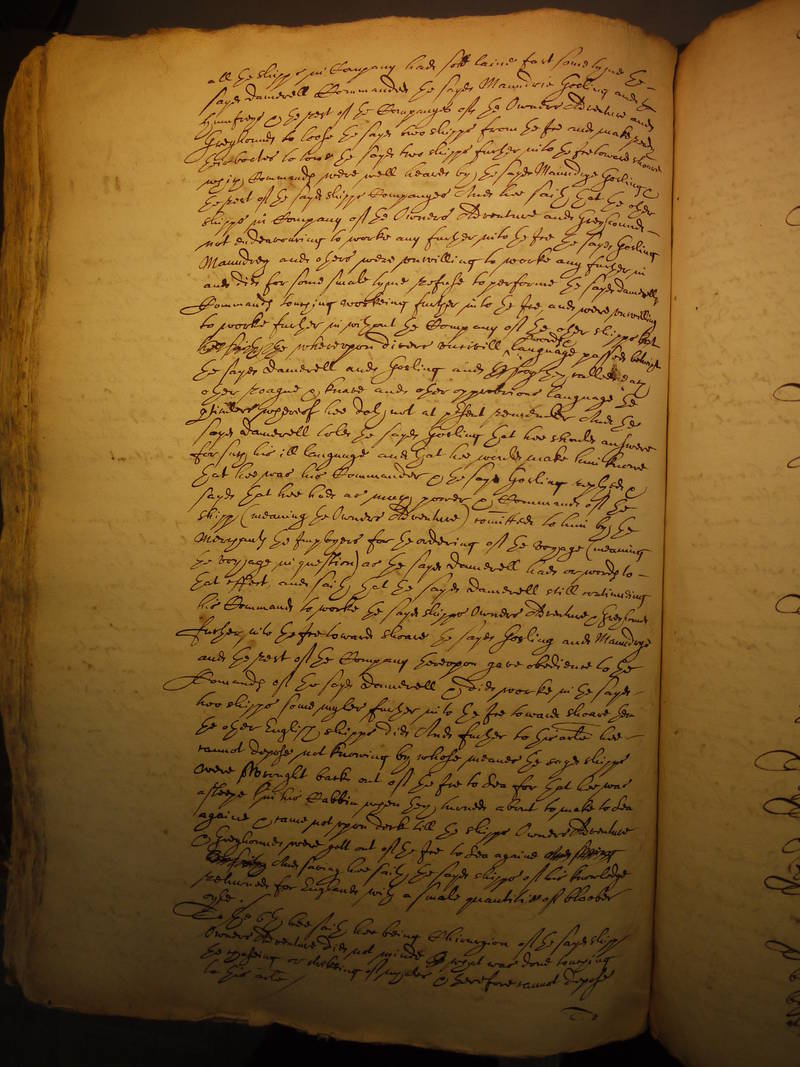 all the shipps in Company had soe laine fast some tyme the
sayd Damerell Commanded the sayd Maundrie Gosling and the
Humfreys & the rest of the Companyes of the Owners Adventure and
Greyhound to loose the sayd two shipps from the Ice and make ready
their boates to towe the sayd two shipps further into the Ice toward shoare
which Commands were well heard by the sayd Maundrye Gosling &
the rest of the sayd shipps Companyes And hee saith that the other
shipps in Company of the Owners Adventure and Greyhound
not endeavouring to worke any further into the Ice the sayd Gosling
Maundrey and others were unwilling to worke any further in
and did for some smale tyme refuse to performe the sayd Damerells
Commands touching workeing further into the Ice and were unwilling
to worke further in without the Company of the other shipps
hee saith, whereupon divers uncivill words & language passed betwixt
the sayd Damerell and Gosling and they called each
other roague & knave and other opprobrious language the
whereof hee doth not at present remember And the
sayd Damerell told the sayd Gosling that hee should answere
for such his ill language and that hee would make him knowe
that hee was his Commander & the sayd Gosling replyed &
sayd that hee had as much power & Command of the
shipp (meaning the Owners Adventure) comitted to him by the
Merchants the Imployers for the ordering of the voyage (meaning
the voyage in question) as the sayd Damerell had or words to
that effect, and saith that the sayd Damerell still continuing
his Command to worke the sayd shipps Owners Adventure & Greyhound
further into the Ice towards shoare the sayd Gosling and Maundrye
and the rest of the Company thereupon gave obedience to the
Comands of the sayd Damerell & did worke in the sayd
two shipps some myles further into the Ice toward shoare then
the other English shipps did And further to this arte hee
cannot depose not knowing by whose meanes the sayd shipps
were brought back out of the Ice to Sea for that hee was
asleepe in his Cabbin when they turned about to make to Sea
againe & came not upon deck till the shipps Owners Adventure
& Greyhound were gott out of the Ice to Sea againe
And saving hee saith the sayd shipps of his knowledge
returned for England with a smale quantitie of bloober
onlie.
To the 6th hee saith hee being Chirurgion of the sayd shipp
Owners Adventure did not minde what was done touching
the of & therefore cannot depose
to this arte